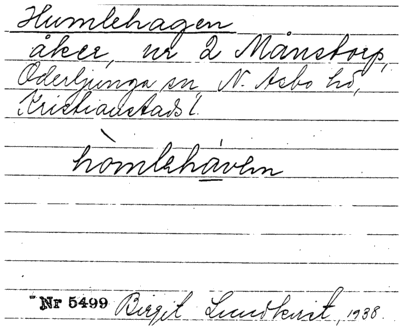 Humlehagen
åker, nr 2 Månstorp,
Oderljunga sn, N. Åsbo hd,
Kristianstads l.
hòmlehávен
Nr 5499 Birgit Lundkvist, 1938.